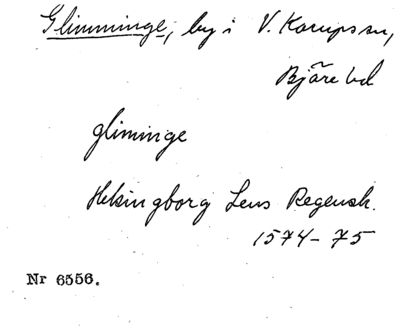 Glimminge, by i V. Karups sn,
Bjäre hd
gliminge
Helsingborg Lens Regensk.
1574-75
Nr 6556.